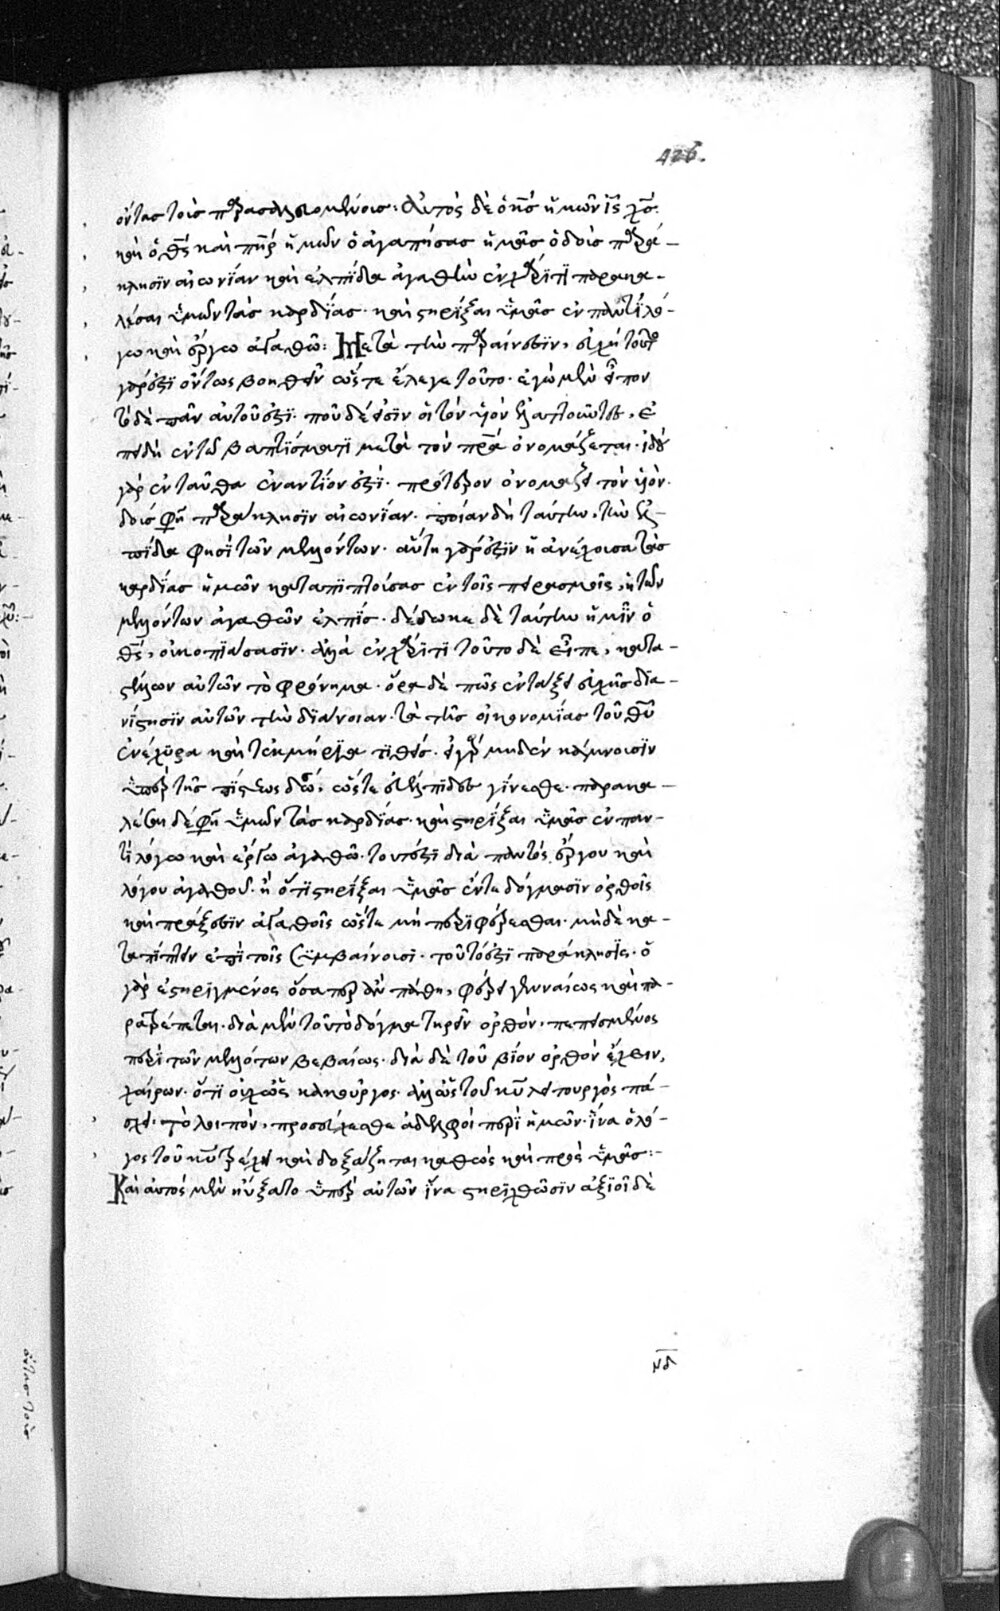 426.
όντας τοῖς παρασαλευομένοις· Αὐτὸς δὲ ὁ κ̅ς̅ ἡμῶν ἰ̅ς̅ χ̅ς̅
καὶ ὁ θ̅ς̅ καὶ π̅η̅ρ̅ ἡμῶν ὁ ἀγαπήσας ἡμᾶς ὁ δοὺς παρά-
κλησϊν αἰωνίαν καὶ ἐλπίδα ἀγαθὴν ἐν χάριτι παρακα-
λέσαι ὑμῶν τὰς καρδίας· καὶ στηρίξαι ὑμᾶς ἐν παντὶ λό-
γω καὶ ἔργω ἀγαθῶ: Μετὰ τὴν παραίνεσιν, εὐχὴ τοῦτο
γάρ ἐστι ὄντως βοηθεῖν ὥστε ἔλεγε τοῦτο· ἐγὼ μὲν εἶπον
τὸ δὲ πᾶν αὐτοῦ ἐστι· ποῦ δέ εἰσιν οἱ τὸν υἱὸν ἐλαττοῦντες, ἐ
πειδὴ ἐν τῶ βαπτίσματι μετὰ τὸν π̅ρ̅α̅ ὀνομάζεται· ἰδοὺ
γὰρ ἐνταῦθα ἐναντίον ἐστί· πρότερον ὀνομάζει τὸν υἱόν·
δοὺς φησὶ παράκλησιν αἰωνίαν· ποίαν δὴ ταύτην, τὴν ἐλ-
πίδα φησὶ τῶν μελλόντων· αὕτη γάρ ἐστιν ἡ ἀνέχουσα τὰς
καρδίας ἡμῶν καταπιπτούσας ἐν τοῖς πειρασμοῖς, ἡ τῶν
μελλόντων ἀγαθῶν ἐλπίς· δέδωκε δὲ ταύτην ἡμῖν ὁ
θ̅ς̅, οὐ κοπιάσασιν· ἀλλὰ ἐν χάριτι τοῦτο δὲ εἶπε, κατα-
στέλλων αὐτῶν τὸ φρόνημα· ὅρα δὲ πῶς ἐν τάξει εὐχῆς δια-
νίστησιν αὐτῶν τὴν διάνοιαν· τὰ τῆς οἰκονομίας τοῦ θ̅υ̅
ἐνέχυρα καὶ τεκμήρια τιθείς· εἰ γὰρ μηδὲν κάμνουσιν
ὑπὲρ τῆς πίστεως ὥστε εὐέλπιδες γίνεσθε· παρακα-
λέσαι δέ φησὶ ὑμῶν τὰς καρδίας· καὶ στηρίξαι ὑμᾶς ἐν παν-
τὶ λόγω καὶ ἔργω ἀγαθῶ· τουτέστι διὰ παντὸς ἔργου καὶ
λόγου ἀγαθοῦ· ἢ ὅτι στηρίξαι ὑμᾶς ἔν τε δόγμασιν ὀρθοῖς
καὶ πράξεσιν ἀγαθοῖς ὥστε μὴ περιφέρεσθαι· μηδὲ κα-
ταπίπτειν ἐπὶ τοῖς συμβαίνουσι· τοῦτό ἐστι παράκλησις· ὁ
γὰρ ἐστηριγμένος ὅσα περ ἂν πάθη, φέρει γενναίως καὶ πα-
ρατρέπεται· διὰ μὲν τοῦ τὸ δόγμα τηρεῖν ὀρθόν· πεπεισμένος
περὶ τῶν μελλόντων βεβαίως· διὰ δὲ τοῦ βίον ὀρθὸν ἔχειν,
χαίρων· ὅτι οὐχ ὡς κακοῦργος· ἀλλ' ὡς τοῦ κ̅υ̅ λειτουργὸς πά-
σχει· Τὸ λοιπὸν, προσεύχεσθε ἀδελφοὶ περὶ ἡμῶν· ἵνα ὁ λό-
γος τοῦ κ̅υ̅ τρέχη καὶ δοξάζηται καθὼς καὶ πρὸς ὑμᾶς:-
Καὶ αὐτὸς μὲν ηὔξατο ὑπὲρ αὐτῶν ἵνα στηριχθῶσιν ἀξιοῖ δὲ
νδ
όντας τοῖς